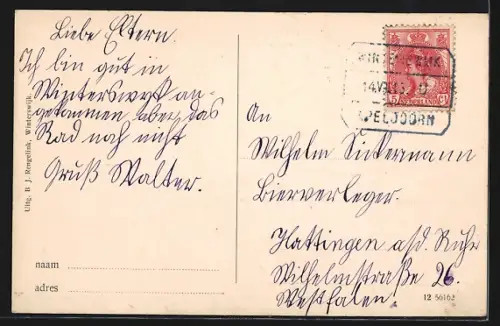 Liebe Eltern.
Ich bin gut in
Winterswyk an-
gekommen aber das
Rad noch nicht
Gruß Walter.
Uitg. B J. Rengelink, Winterswijk.
naam
adres
5 NEDERLAND CT
APELDOORN
An
Wilhelm
Bierverleger.
Hattingen a/d. Ruhr
Wilhelmstraße 26.
Westfalen.
12 56162